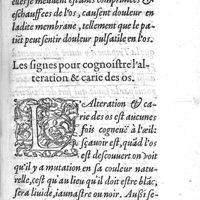 eues se meuuent estants comprimees &
eschauffees de l'os, causent douleur en
ladite membrane, tellement que le pa-
tiēt peut sentir douleur pulsatile en l'os.
Les signes pour cognoistre l'al-
teration & carie des os.
L'Alteration & ca-
rie des os est aucunes
fois cogneuë à l'œil:
sçauoir est, quād l'os
est descouuert on voit
qu'il y a mutation en sa couleur natu-
relle, cest qu'au lieu qu'il doit estre blāc,
sera liuide, iaunastre ou noir. Aussi se